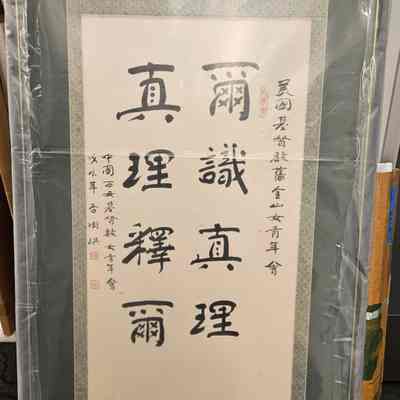 美国基督教舊金山女青年會
爾識真理
真理釋爾
中國西安基督教女青年會
戊辰年